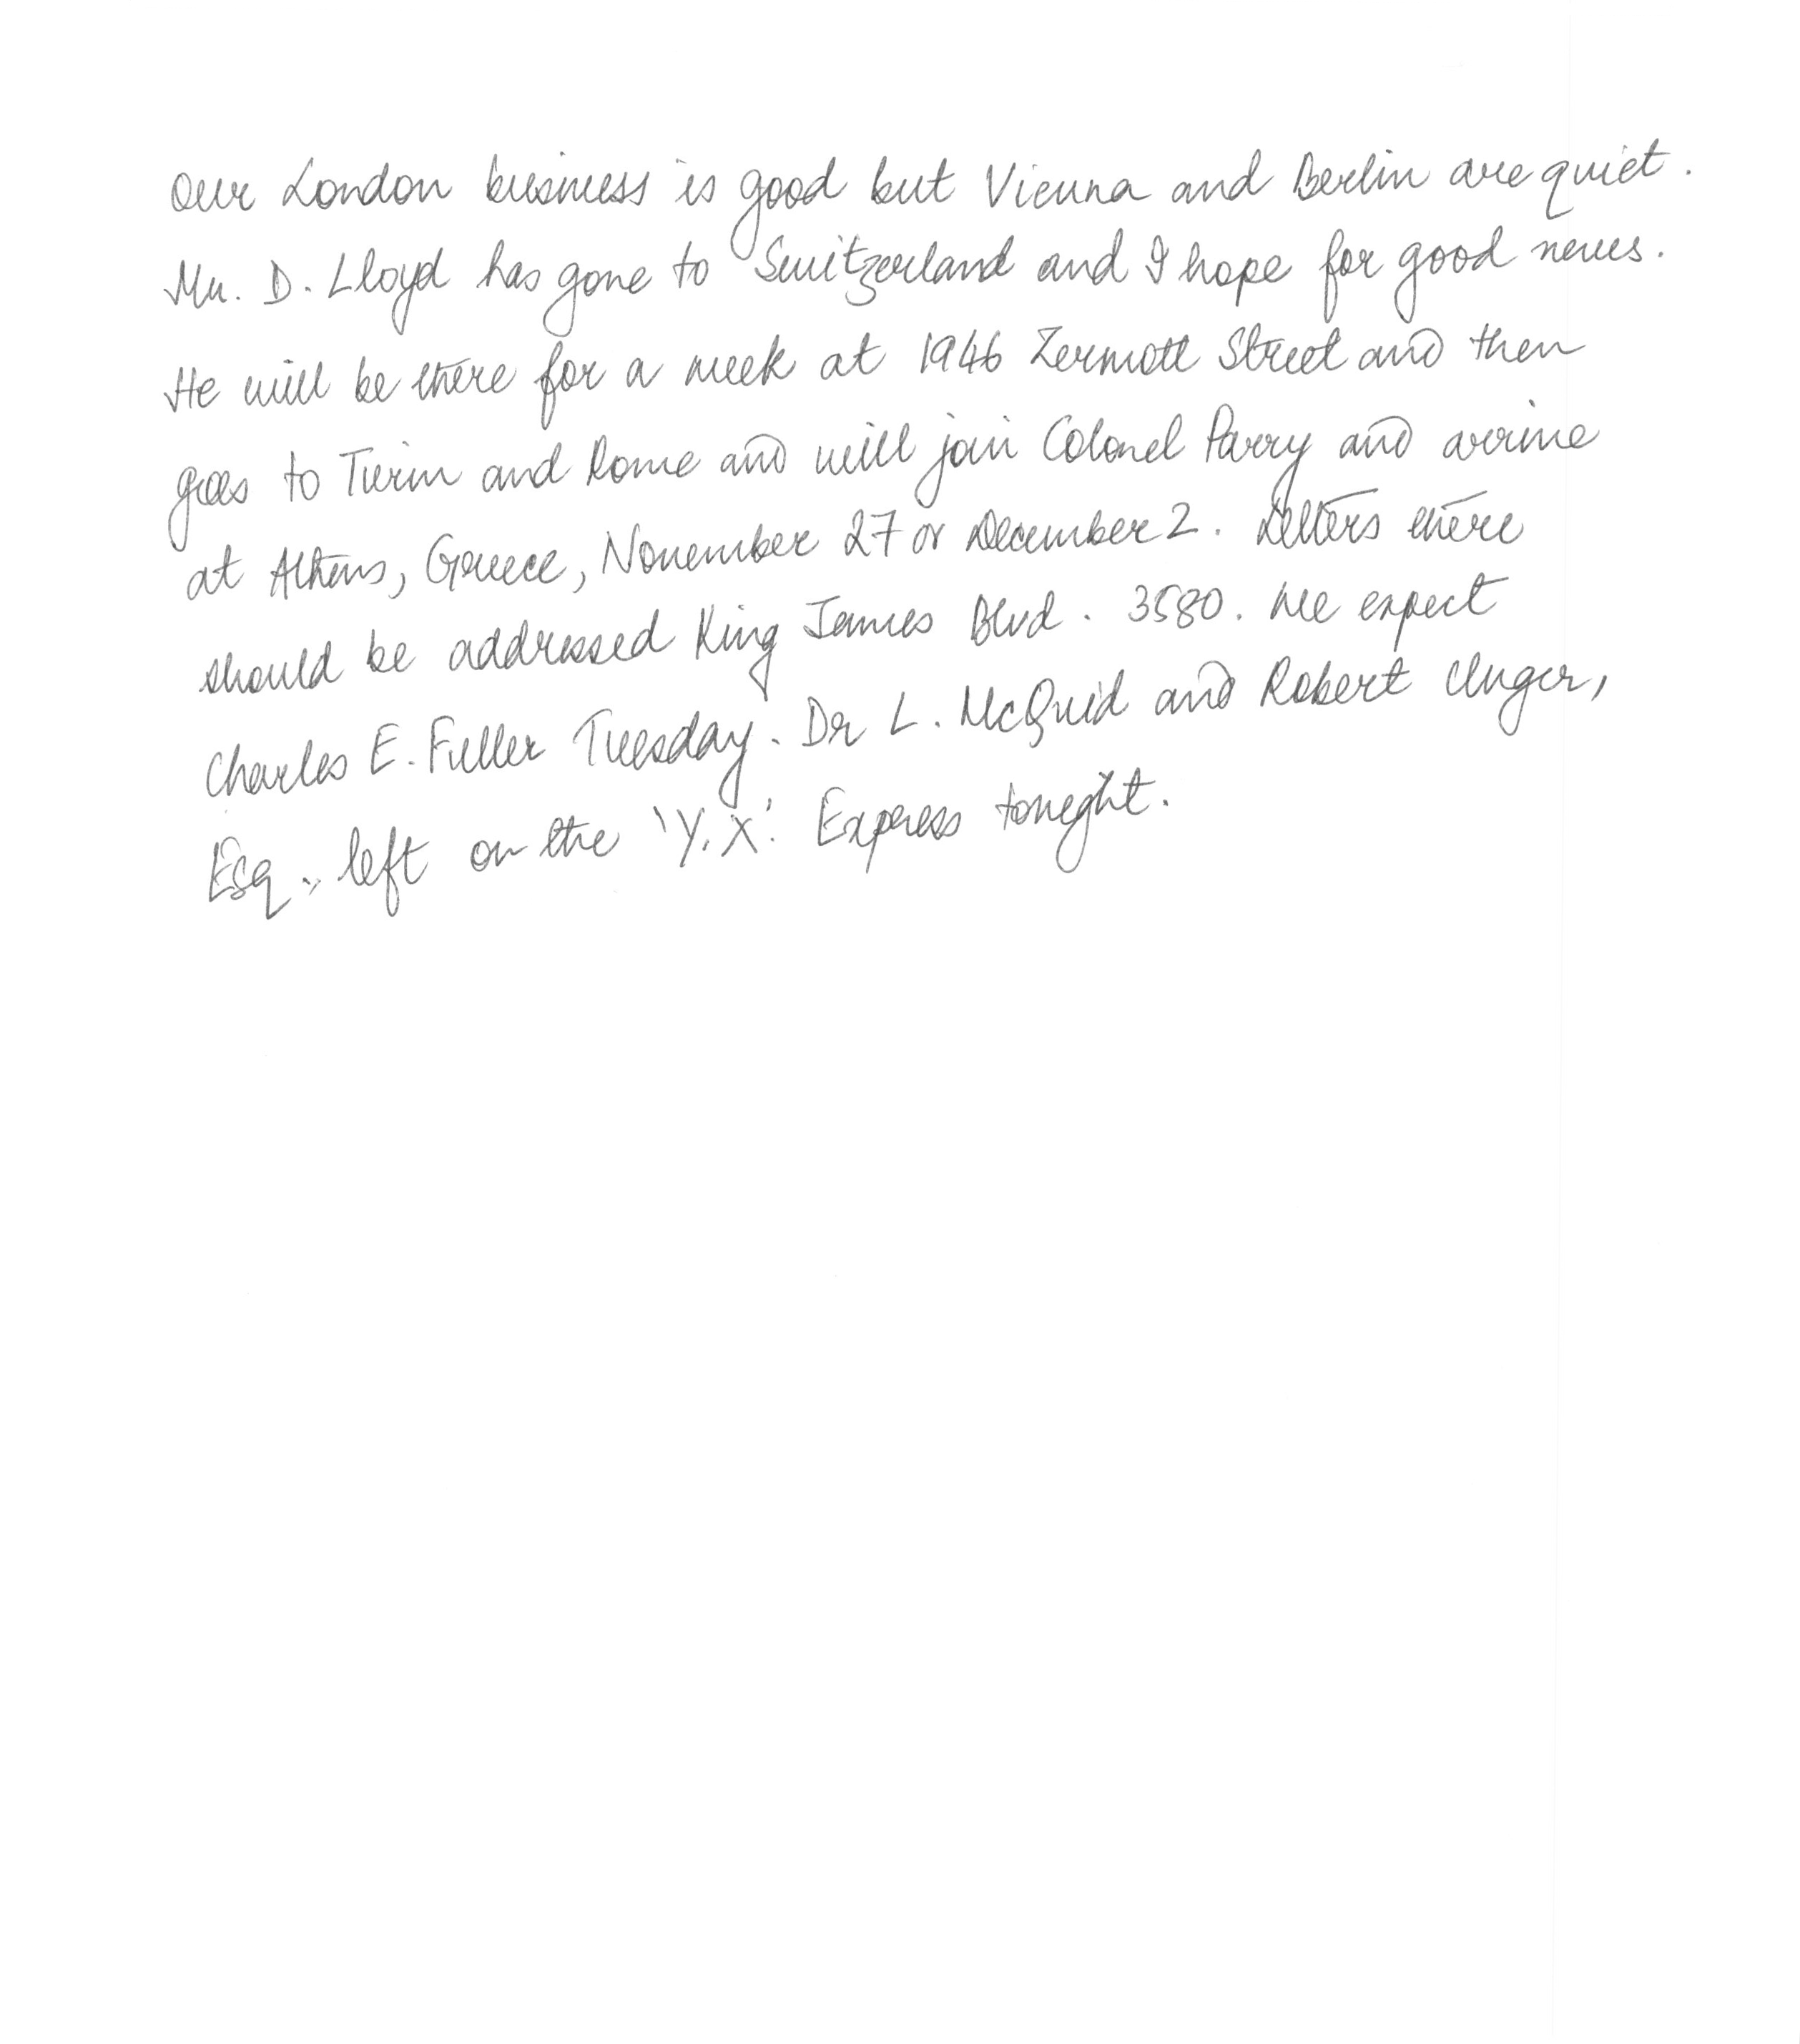 Our London business is good but Vienna and Berlin are quiet.
Mr. D. Lloyd has gone to Switzerland and I hope for good news.
He will be there for a week at 1946 Zermott Street and then
goes to Turin and Rome and will join Colonel Parry and arrive
at Athens, Greece, November 27 or December 2. Letters there
should be addressed King James Blvd. 3580. We expect
Charles E. Fuller Tuesday. Dr L. McQuid and Robert Unger,
Esq., left on the 'Y.X.' Express tonight.